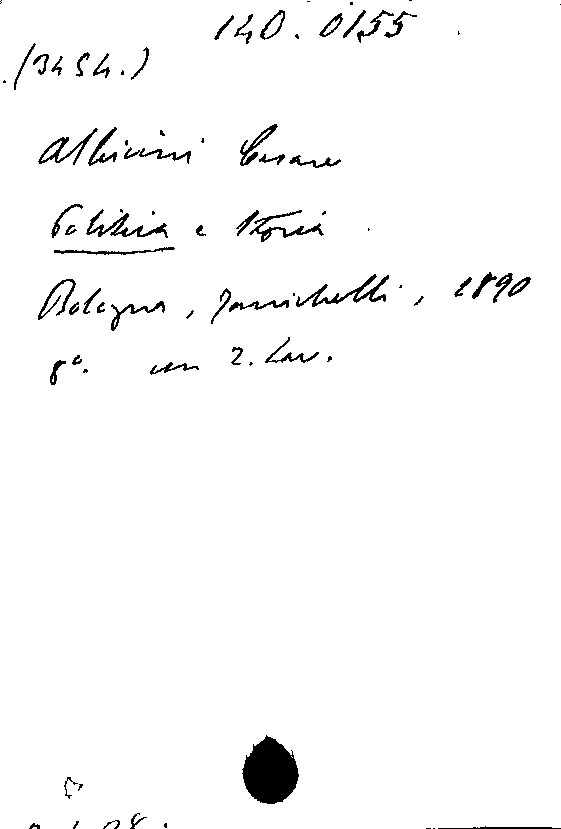 140.0155
(3454.)
Albicini Cesare
Politica e Storia
Bologna, Zanichelli, 1890
8°. con 2. tav.